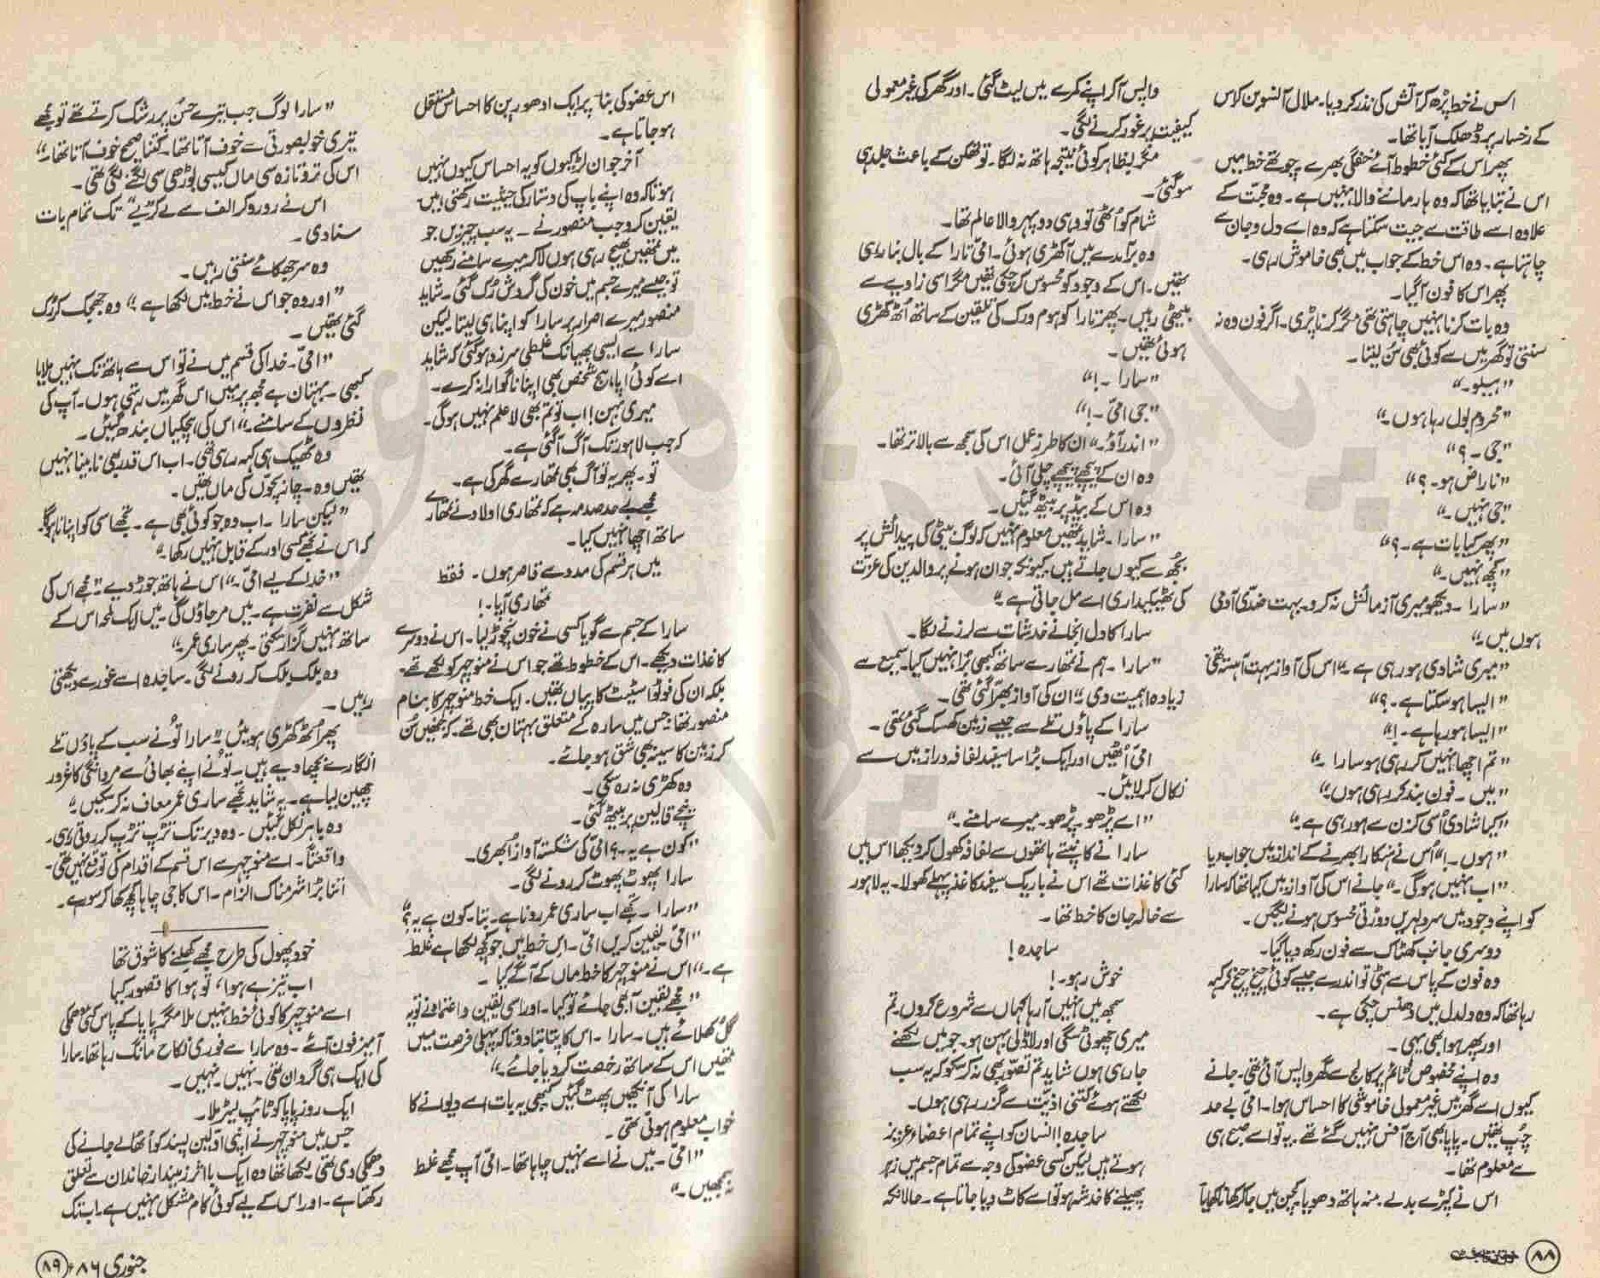 اس نے خط پڑھ کر آتش کی نذر کر دیا۔ ملال آنسو بن کر اس
کے رخسار پر ڈھلک آیا تھا۔
پھر اس کے کئی خطوط آئے خفگی بھرے چوتھے خط میں
اس نے بتایا تھا کہ وہ ہار ماننے والا نہیں ہے۔ وہ محبت کے
علاوہ اسے طاقت سے جیت سکتا ہے کہ وہ اسے دل و جان سے
چاہتا ہے۔ وہ اس خط کے جواب میں بھی خاموش رہی۔
پھر اس کا فون آگیا۔
وہ بات کرنا نہیں چاہتی تھی مگر کرنا پڑی۔ اگر فون وہ نہ
سنتی تو گھر میں سے کوئی بھی سُن لیتا۔
"ہیلو۔"
"محروم بول رہا ہوں۔"
"جی۔؟"
"ناراض ہو۔؟"
"جی نہیں۔"
"پھر کیا بات ہے۔؟"
"کچھ نہیں۔"
"سارا۔ دیکھو میری آزمائش نہ کرو۔ بہت ضدی آدمی
ہوں میں۔"
"میری شادی ہو رہی ہے۔" اس کی آواز بہت آہستہ تھی
"ایسا ہو سکتا ہے۔؟"
"ایسا ہو رہا ہے۔!"
"تم اچھا نہیں کر رہی ہو سارا۔"
"میں۔ فون بند کر رہی ہوں۔"
"کیا شادی اُسی کزن سے ہو رہی ہے۔"
"ہوں۔!" اُس نے ہنکارا بھرنے کے انداز میں جواب دیا
"اب نہیں ہوگی۔" جانے اس کی آواز میں کیا تھا کہ سارا
کو اپنے وجود میں سرد لہریں دوڑتی محسوس ہونے لگیں۔
دوسری جانب کھٹاک سے فون رکھ دیا گیا۔
وہ فون کے پاس سے ہٹی تو اندر سے جیسے کوئی چیخ چیخ کر کہہ
رہا تھا کہ وہ دلدل میں دھنس چکی ہے۔
اور پھر ہوا بھی یہی۔
وہ اپنے مخصوص ٹائم پر کالج سے گھر واپس آئی تھی۔ جانے
کیوں اسے گھر میں غیر معمولی خاموشی کا احساس ہوا۔ امی بے حد
چپ تھیں۔ پاپا بھی آج آفس نہیں گئے تھے۔ یہ تو اسے صبح ہی
سے معلوم تھا۔
اس نے کپڑے بدلے۔ منہ ہاتھ دھویا۔ کچن میں جا کر کھانا کھایا
واپس آ کر اپنے کمرے میں لیٹ گئی۔ اور گھر کی غیر معمولی
کیفیت پر غور کرنے لگی۔
مگر بظاہر کوئی نتیجہ ہاتھ نہ لگا۔ تو تھکن کے باعث جلد ہی
سو گئی۔
شام کو اُٹھی تو وہی دوپہر والا عالم تھا۔
وہ برآمدے میں آ کھڑی ہوئی۔ امی تارا کے بال بنا رہی
تھیں۔ اس کے وجود کو محسوس کر چکی تھیں مگر اسی زاویے سے
بیٹھی رہیں۔ پھر تارا کو ہوم ورک کی تلقین کے ساتھ اُٹھ کھڑی
ہوئی تھیں۔
"سارا۔!"
"جی امی۔!"
"اندر آؤ۔" ان کا طرزِ عمل اس کی سمجھ سے بالا تر تھا۔
وہ ان کے پیچھے پیچھے چلی آئی۔
وہ اس کے بیڈ پر بیٹھ گئیں۔
"سارا۔ شاید تمھیں معلوم نہیں کہ لوگ بیٹی کی پیدائش پر
بجھ سے کیوں جاتے ہیں۔ کیونکہ جوان ہونے پر والدین کی عزت
کی ٹھیکیداری اسے مل جاتی ہے۔"
سارا کا دل انجانے خدشات سے لرزنے لگا۔
"سارا۔ ہم نے تمھارے ساتھ کبھی بُرا نہیں کیا۔ سمیع سے
زیادہ اہمیت دی۔" ان کی آواز بھرّا گئی تھی۔
سارا کے پاؤں تلے سے جیسے زمین کھسک گئی تھی۔
امی اُٹھیں اور ایک بڑا سا سفید لفافہ دراز میں سے
نکال کر لائیں۔
"اسے پڑھو۔ پڑھو۔ میرے سامنے۔"
سارا نے کانپتے ہاتھوں سے لفافہ کھول کر دیکھا اس میں
کئی کاغذات تھے اس نے باریک سفید کاغذ پہلے کھولا۔ یہ لاہور
سے خالہ جان کا خط تھا۔
ساجدہ!
خوش رہو۔!
سمجھ میں نہیں آ رہا کہاں سے شروع کروں۔ تم
میری چھوٹی سگی اور لاڈلی بہن ہو۔ جو میں لکھنے
جا رہی ہوں شاید تم تصور بھی نہ کر سکو کہ یہ سب
لکھتے ہوئے کتنی اذیت سے گزر رہی ہوں۔
ساجدہ! انسان کو اپنے تمام اعضاء عزیز
ہوتے ہیں لیکن کسی عضو کی وجہ سے تمام جسم میں زہر
پھیلنے کا خدشہ ہو تو اسے کاٹ دیا جاتا ہے۔ حالانکہ
۸۸
اس عضو کی بنا پر ایک ادھورے پن کا احساس مستقل
ہو جاتا ہے۔
آخر جوان لڑکیوں کو یہ احساس کیوں نہیں
ہوتا کہ وہ اپنے باپ کی دستار کی حیثیت رکھتی ہیں۔
یقین کرو جب منصور نے ۔ یہ سب چیزیں جو
میں تمھیں بھیج رہی ہوں لا کر میرے سامنے رکھیں
تو جیسے میرے جسم میں خون کی گردش رُک گئی۔ شاید
منصور میرے اصرار پر سارا کو اپنا ہی لیتا لیکن
سارا سے ایسی بھیانک غلطی سرزد ہوگئی کہ شاید
اسے کوئی اپاہج شخص بھی اپنانا گوارا نہ کرے۔
میری بہن! اب تو تم بھی لا علم نہیں ہوگی۔
کہ جب لاہور تک آگ آ گئی ہے۔
تو۔ پھر یہ تو آگ بھی تمھارے گھر کی ہے۔
مجھے بے حد صدمہ ہے کہ تمھاری اولاد نے تمھارے
ساتھ اچھا نہیں کیا۔
میں ہر قسم کی مدد سے قاصر ہوں۔ فقط
تمھاری آپا۔!
سارا کے جسم سے گویا کسی نے خون نچوڑ لیا۔ اس نے دوسرے
کاغذات دیکھے۔ اس کے خطوط تھے جو اس نے منوچہر کو لکھے تھے۔
بلکہ ان کی فوٹو اسٹیٹ کاپیاں تھیں۔ ایک خط منوچہر کا بنام
منصور تھا جس میں سارہ کے متعلق بہتان بھی تھے کہ جنھیں سُن
کر زمین کا سینہ بھی شق ہو جائے۔
وہ کھڑی نہ رہ سکی۔
نیچے قالین پر بیٹھ گئی۔
"کون ہے یہ۔؟" امی کی شکستہ آواز اُبھری۔
سارا پھوٹ پھوٹ کر رونے لگی۔
"سارا۔ تجھے اب ساری عمر رونا ہے۔ بتا۔ کون ہے یہ؟"
"امی۔ یقین کریں امی۔ اس خط میں جو کچھ لکھا ہے غلط
ہے۔" اس نے منوچہر کا خط ماں کے آگے کیا۔
"مجھے یقین آ بھی جائے تو کیا۔ اور اسی یقین و اعتماد نے تو یہ
گُل کھلائے ہیں۔ سارا۔ اس کا پتا بتا دو تاکہ پہلی فرصت میں
تمھیں اس کے ساتھ رخصت کر دیا جائے۔"
سارا کی آنکھیں پھٹ گئیں کبھی یہ بات اسے دیوانے کا
خواب معلوم ہوتی تھی۔
"امی۔ میں نے اسے نہیں چاہا تھا۔ امی آپ مجھے غلط
نہ سمجھیں۔"
"سارا لوگ جب تیرے حسن پر رشک کرتے تھے تو مجھے
تیری خوبصورتی سے خوف آتا تھا۔ کتنا صحیح خوف آتا تھا۔"
اس کی تروتازہ سی ماں کیسی بوڑھی سی لگنے لگی تھی۔
اس نے رو رو کر الف سے لے کر "ے" تک تمام بات
سنا دی۔
وہ سر جھکائے سنتی رہیں۔
"اور وہ جو اس نے خط میں لکھا ہے۔" وہ جھجک کر رُک
گئی تھیں۔
"امی۔ خدا کی قسم میں نے تو اس سے ہاتھ تک نہیں ملایا
کبھی۔ بہتان ہے مجھ پر میں اس گھر میں رہتی ہوں۔ آپ کی
نظروں کے سامنے۔" اس کی ہچکیاں بندھ گئیں۔
وہ ٹھیک ہی کہہ رہی تھی۔ اب اس قدر بھی نابینا نہیں
تھیں وہ۔ چار بچوں کی ماں تھیں۔
"لیکن سارا۔ اب وہ جو کوئی بھی ہے۔ تجھے اسی کو اپنانا ہوگا
کہ اس نے تجھے کسی اور کے قابل نہیں رکھا۔"
"خدا کے لیے امی۔" اس نے ہاتھ جوڑ دیے۔ "مجھے اس کی
شکل سے نفرت ہے۔ میں مر جاؤں گی۔ میں ایک لمحہ اس کے
ساتھ نہیں گزار سکتی۔ پھر ساری عمر۔"
وہ بلک بلک کر رونے لگی۔ ساجدہ اسے غور سے دیکھتی
رہیں۔
پھر اُٹھ کھڑی ہوئیں۔ "سارا تُو نے سب کے پاؤں تلے
انگارے بچھا دیے ہیں۔ تُو نے اپنے بھائی سے مردانگی کا غرور
چھین لیا ہے۔ یہ شاید تجھے ساری عمر معاف نہ کر سکیں۔"
وہ باہر نکل گئیں۔ وہ دیر تک تڑپ تڑپ کر روتی رہی۔
واقعتاً۔ اسے منوچہر سے اس قسم کے اقدام کی توقع نہیں تھی۔
اتنا بڑا شرمناک الزام۔ اس کا جی چاہا کچھ کھا کر سو رہے۔
خود پھول کی طرح مجھے کھلنے کا شوق تھا
اب تیز ہے ہوا، تو ہوا کا قصور کیا
اسے منوچہر کا کوئی خط نہیں ملا مگر پاپا کے پاس کئی دھمکی
آمیز فون آئے۔ وہ سارا سے فوری نکاح مانگ رہا تھا۔ سارا
کی ایک ہی گردان تھی۔ نہیں۔ نہیں۔
ایک روز پاپا کو ٹائپ لیٹر ملا۔
جس میں منوچہر نے اپنی اوّلین پسند کو اُٹھا لے جانے کی
دھمکی دی تھی۔ لکھا تھا وہ ایک بااثر زمیندار خاندان سے تعلق
رکھتا ہے۔ اور اس کے لیے کوئی کام مشکل نہیں ہے۔ اب تک
جنوری ۸۶ء ۸۹